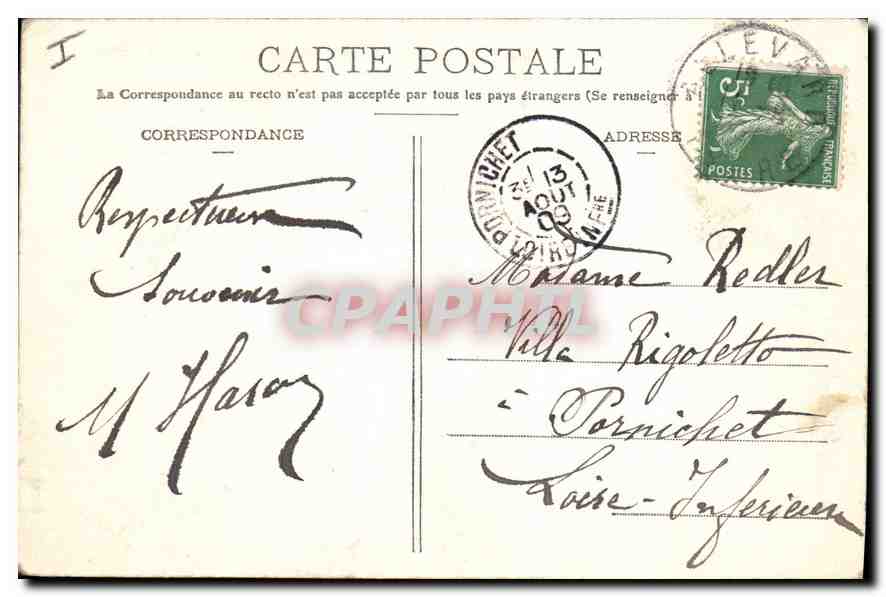 I
CARTE POSTALE
La Correspondance au recto n'est pas acceptée par tous les pays étrangers (Se renseigner à l
CORRESPONDANCE
ADRESSE
ALLEVARD
5c
REPUBLIQUE FRANÇAISE
POSTES
PORNICHET
13
AOUT
09
LOIRE INFRE
Respectueux
Souvenir
M
Madame Redler
Villa Rigoletto
à Pornichet
Loire-Inferieure
CPAPHIL